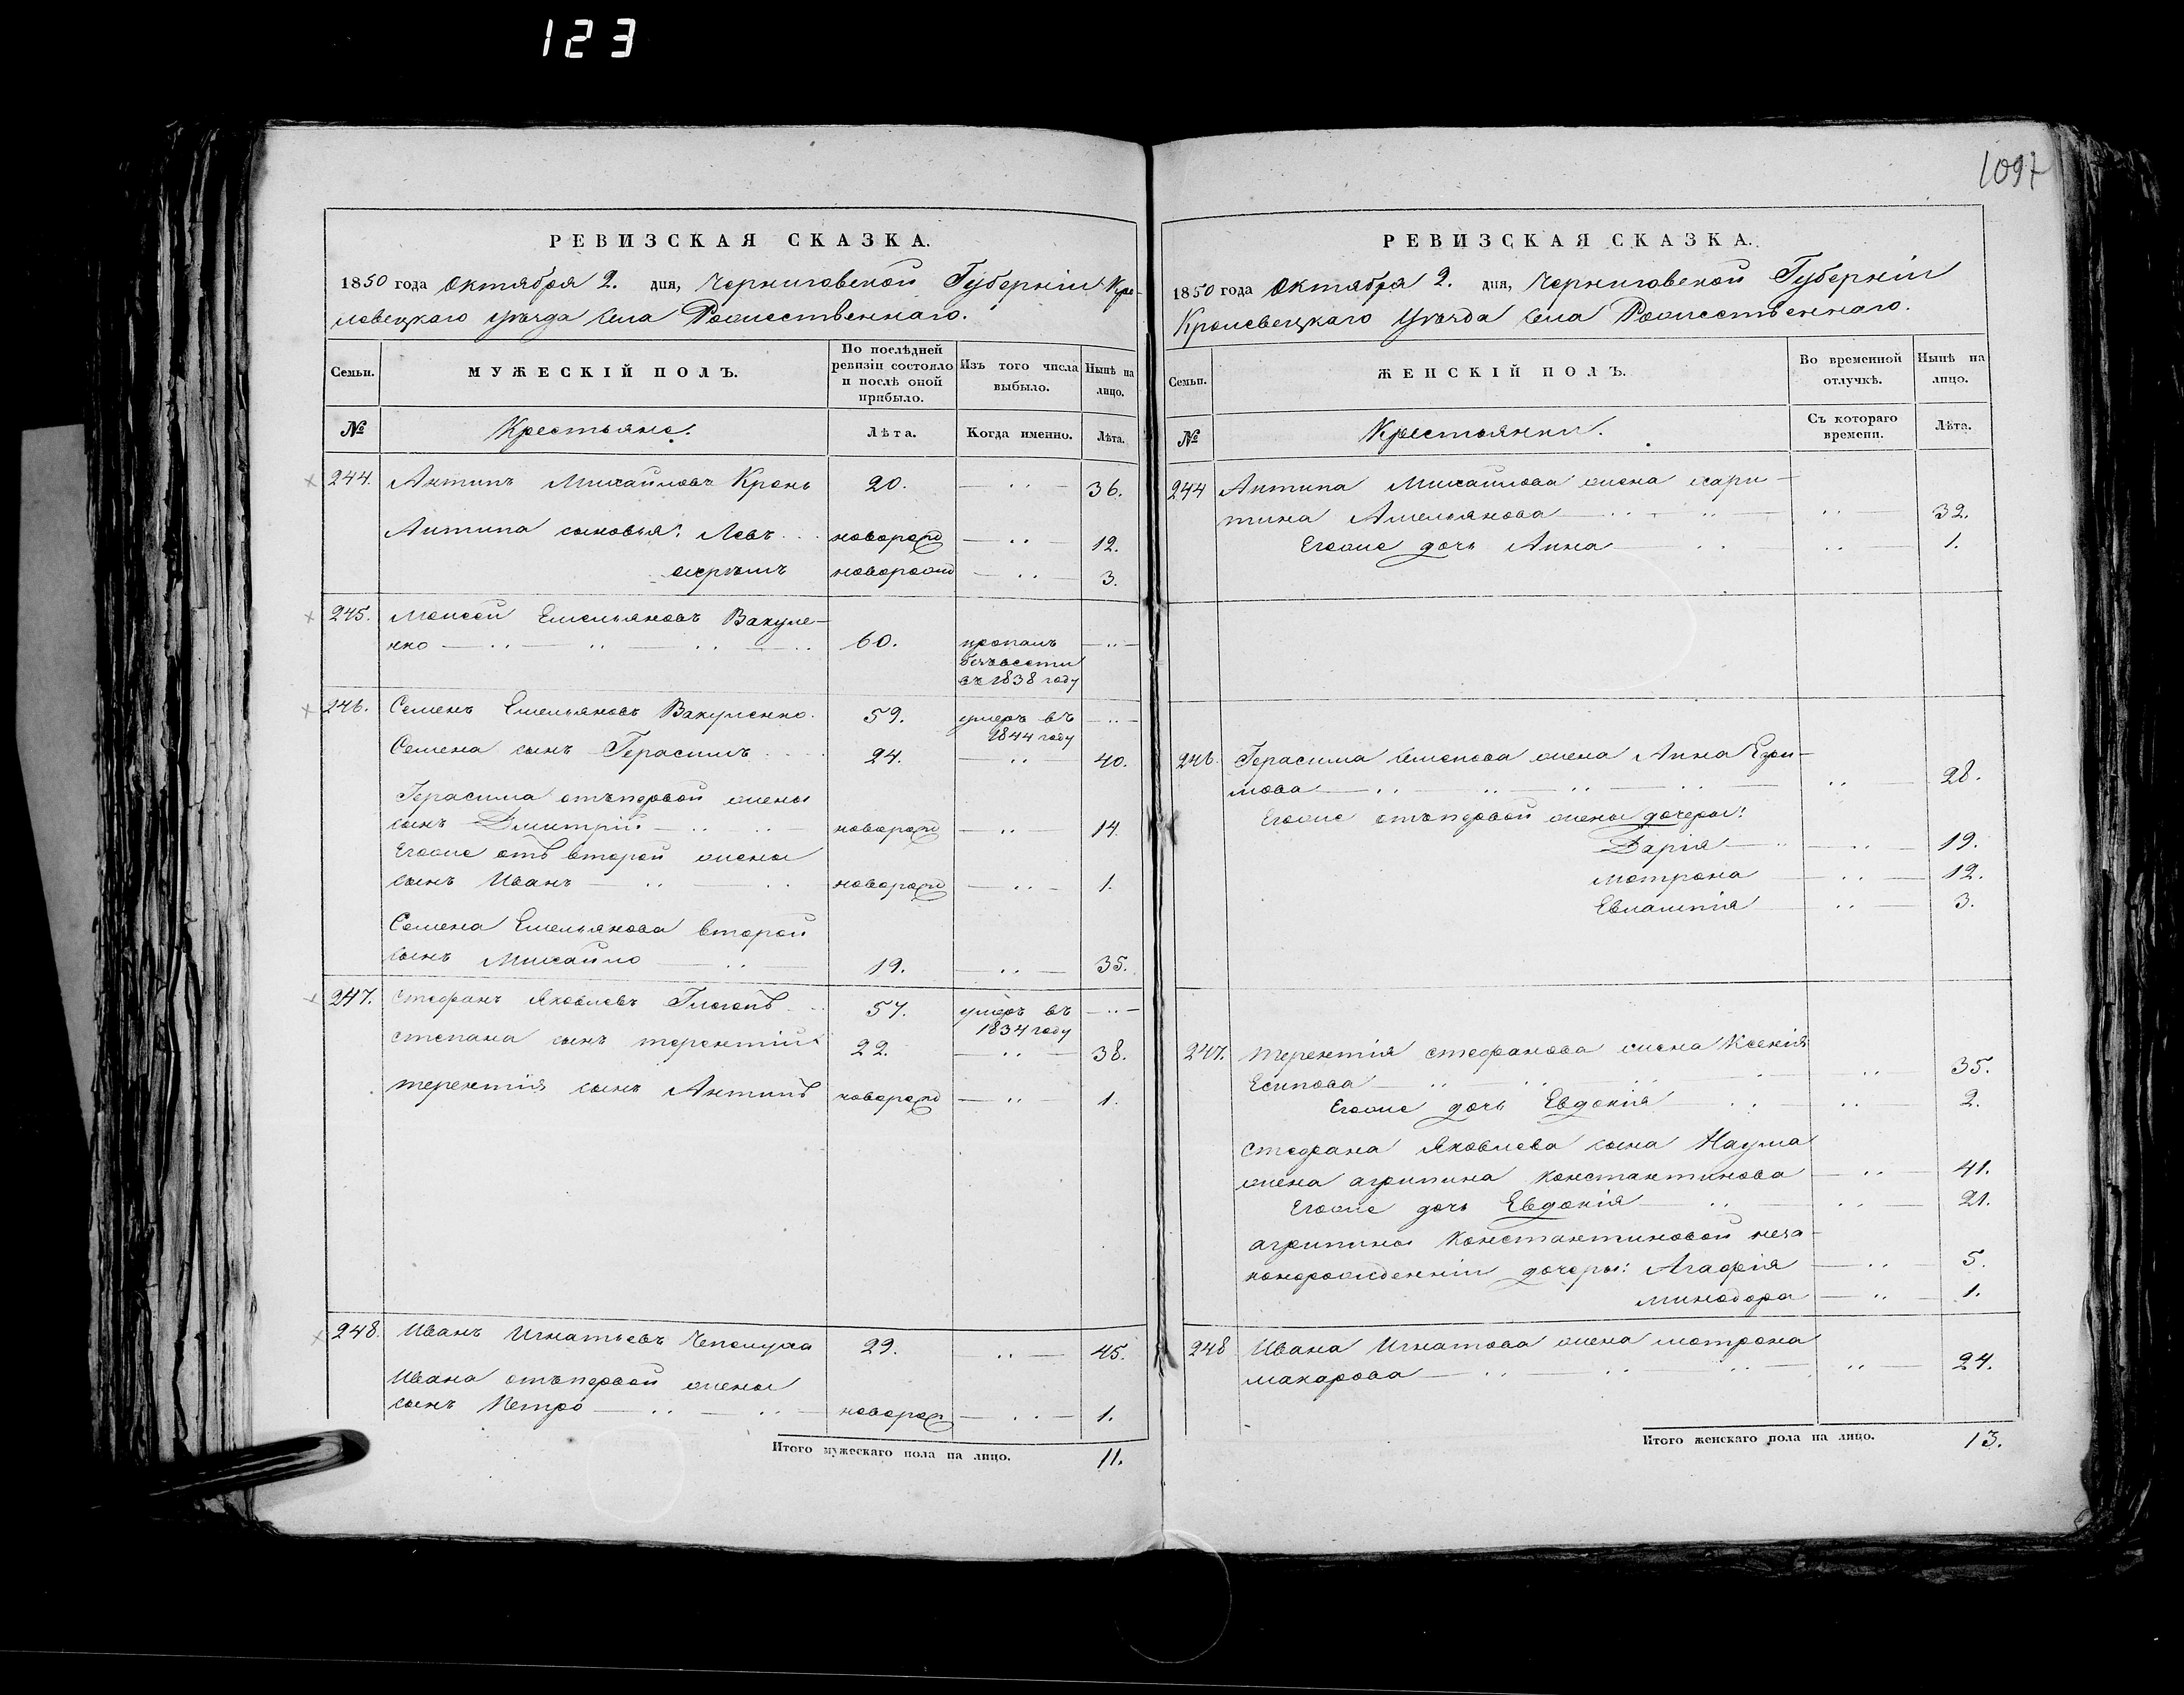 123
1097
РЕВИЗСКАЯ СКАЗКА.
1850 года Октября 2. дня, Черниговской Губерніи Кро-
левецкаго уѣзда села Рожественнаго.
Семьи.
МУЖЕСКІЙ ПОЛЪ.
По послѣдней ревизіи состояло и послѣ оной прибыло.
Изъ того числа выбыло.
Нынѣ на лицо.
№
Крестьяне.
Лѣта.
Когда именно.
Лѣта.
244. Антипъ Михайловъ Кронь 20. 36.
Антипа сыновья: Левъ новорожд 12.
новорожд 3.
245. Моисей Емельяновъ Вакуле-
нко 60. пропалъ
безъвести
въ 1838 году
246. Семенъ Емельяновъ Вакуленко. 59. умеръ въ
1844 году
Семена сынъ Герасимъ 24. 40.
Герасима отъпервой жены
сынъ Дмитрій новорожд 14
Егоже отъ второй жены
сынъ Иванъ новорожд 1.
Семена Емельянова второй
сынъ Михайло 19. 35.
247. Стефанъ Яковлевъ 57. умеръ въ
1834 году
Степана сынъ терентій 22. 38.
терентія сынъ Антипъ новорожд 1.
248. Иванъ Игнатьевъ Чепелуха 29. 45.
Ивана отъпервой жены
сынъ Петро новорож 1.
Итого мужескаго пола на лицо. 11.
РЕВИЗСКАЯ СКАЗКА.
1850 года Октября 2. дня, Черниговской Губерніи
Кролевецкаго уѣзда села Рожественнаго.
Семьи.
ЖЕНСКІЙ ПОЛЪ.
Во временной отлучкѣ.
Нынѣ на лицо.
№
Крестьянки.
Съ котораго времени.
Лѣта.
244 Антипа Михайлова жена хари-
тина Амельянова 32.
Егоже дочь Анна 1.
246. Герасима Семенова жена Анна Ефи-
мова 28.
Егоже отъпервой жены дочеры:
Дарія 19.
мотрона 12.
Евлампія 3.
247. терентія стефанова жена Ксенія
Есипова 35.
Егоже дочь Евдокія 2.
Стефана Яковлева сына Наума
жена агрипина константинова 41.
Егоже дочь Евдокія 21.
агрипины Константиновой неза
конорожденніи дочеры: Агафія 5.
минодора 1.
248 Ивана Игнатова жена мотрона
макарова 24.
Итого женскаго пола на лицо. 13.